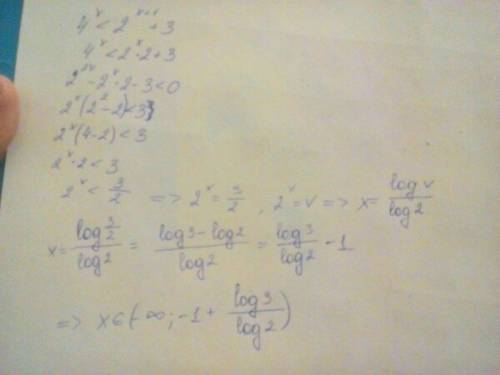 4^x < 2^{x+1} + 3
4^x < 2^x · 2 + 3
2^{2x} - 2^x · 2 - 3 < 0
2^x (2^2 - 2) < 3
2^x (4 - 2) < 3
2^x · 2 < 3
2^x < 3/2 => 2^x = 3/2 , 2^x = v => x = log v / log 2
x = log 3/2 / log 2 = (log 3 - log 2) / log 2 = log 3 / log 2 - 1
=> x ∈ (-∞; -1 + log 3 / log 2)